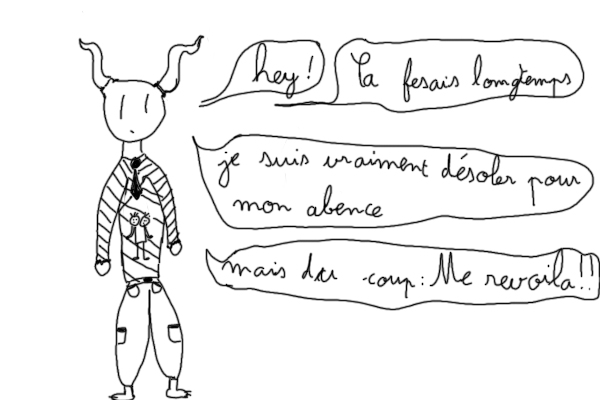 hey!
Ca fesais longtemps
je suis vraiment désoler pour
mon abence
mais du coup: Me revoila!!